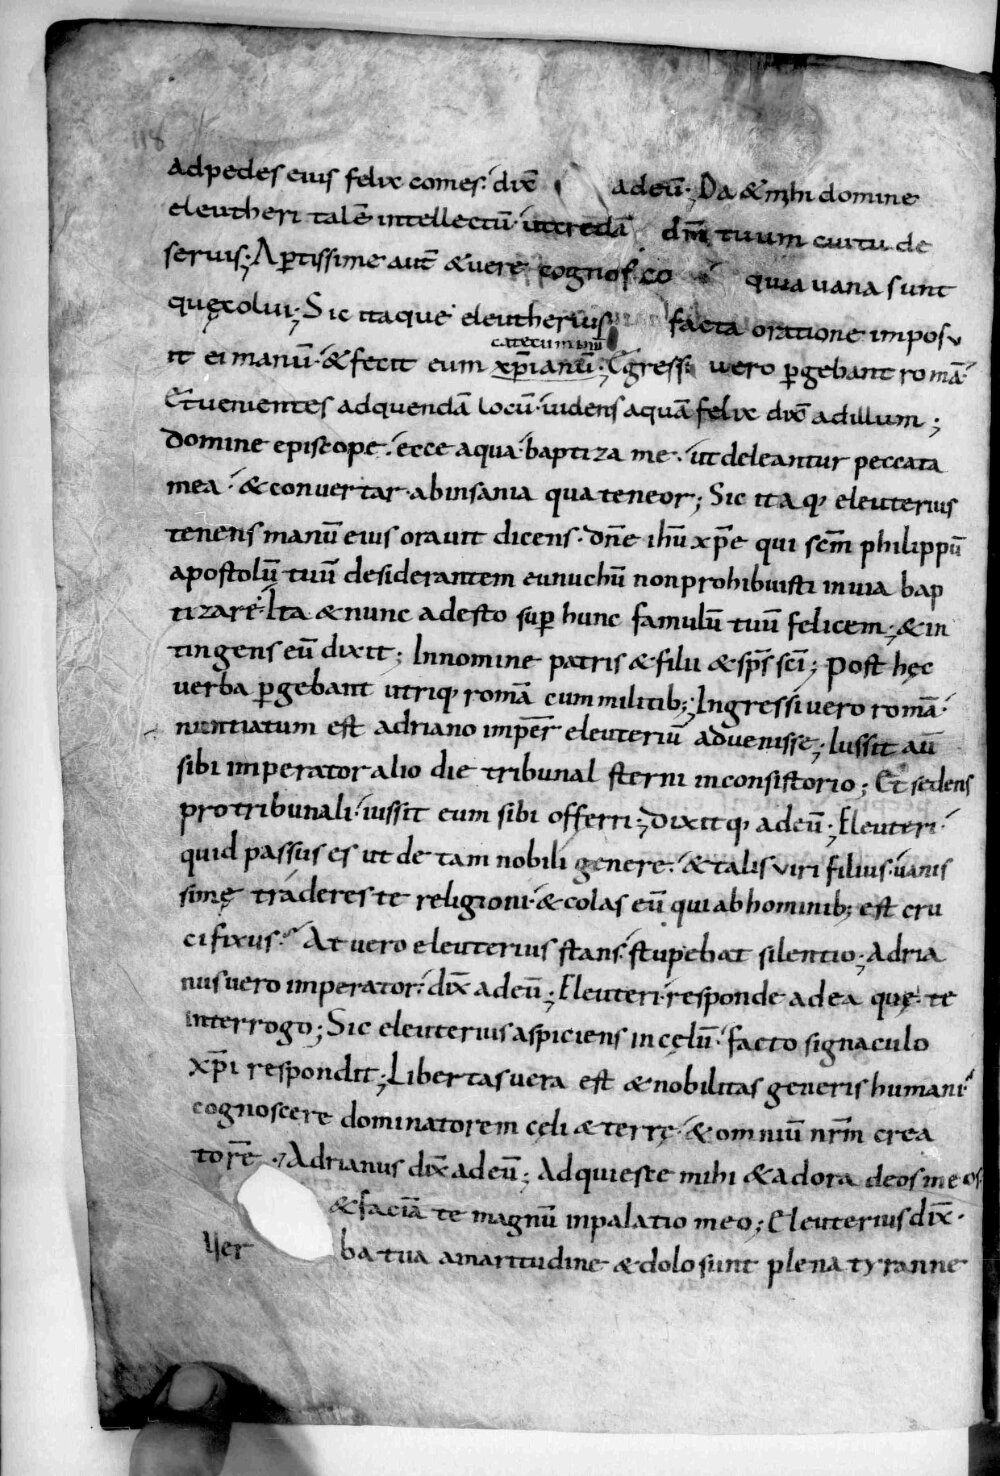 118
ad pedes eius felix comes. dix̅ ad eu̅; Da & mihi domine
eleutheri tale̅ intellectu̅. ut creda̅ dm̅ tuum cui tu de
seruis; Ap̅tissime aut̅ & uere cognosco quia uana sunt
quę colui; Sic itaque eleutherius facta oratione imposu
it ei manu̅. & fecit eum xp̅ianu̅; Egressi uero p̅gebant roma̅.
catecuminu̅
Et uenientes ad quenda̅ locu̅. uidens aqua̅ felix dix̅ ad illum;
domine episcope. ecce aqua. baptiza me. ut deleantur peccata
mea. & conuertar. ab insania qua teneor; Sic itaq; eleuterius
tenens manu̅ eius orauit dicens. dn̅e ihu̅ xp̅e qui sc̅m philippu̅
apostolu̅ tuu̅ desiderantem eunuchu̅ non prohibuisti in uia bap
tizare. Ita & nunc adesto sup̅ hunc famulu̅ tuu̅ felicem; & in
tingens eu̅ dixit; In nomine patris & filii & sp̅s sc̅i; Post hęc
uerba p̅gebant utriq; roma̅ cum militib;; Ingressi uero roma̅.
nuntiatum est adriano imp̅er̅ eleuteriu̅ aduenisse; Iussit au̅
sibi imperator alio die tribunal sterni in consistorio; Et sedens
pro tribunali. iussit eum sibi offerri; Dixitq; ad eu̅; Eleuteri.
quid passus es ut de tam nobili genere. & talis uiri filius. uanis
simę traderes te religioni. & colas eu̅ qui ab hominib; est cru
cifixus. At uero eleuterius stans. stupebat silentio; Adria
nus uero imperator. dix̅ ad eu̅; Eleuteri. responde ad ea quę te
interrogo; Sic eleuterius aspiciens in cęlu̅. facto signaculo
xp̅i respondit; Libertas uera est & nobilitas generis humani.
cognoscere dominatorem cęli & terrę. & omniu̅ nr̅m crea
tore̅; Adrianus dix̅ ad eu̅; Adquiesce mihi & adora deos meos.
& facia̅ te magnu̅ in palatio meo; Eleuterius dix̅.
Uer ba tua amaritudine & dolo sunt plena tyranne